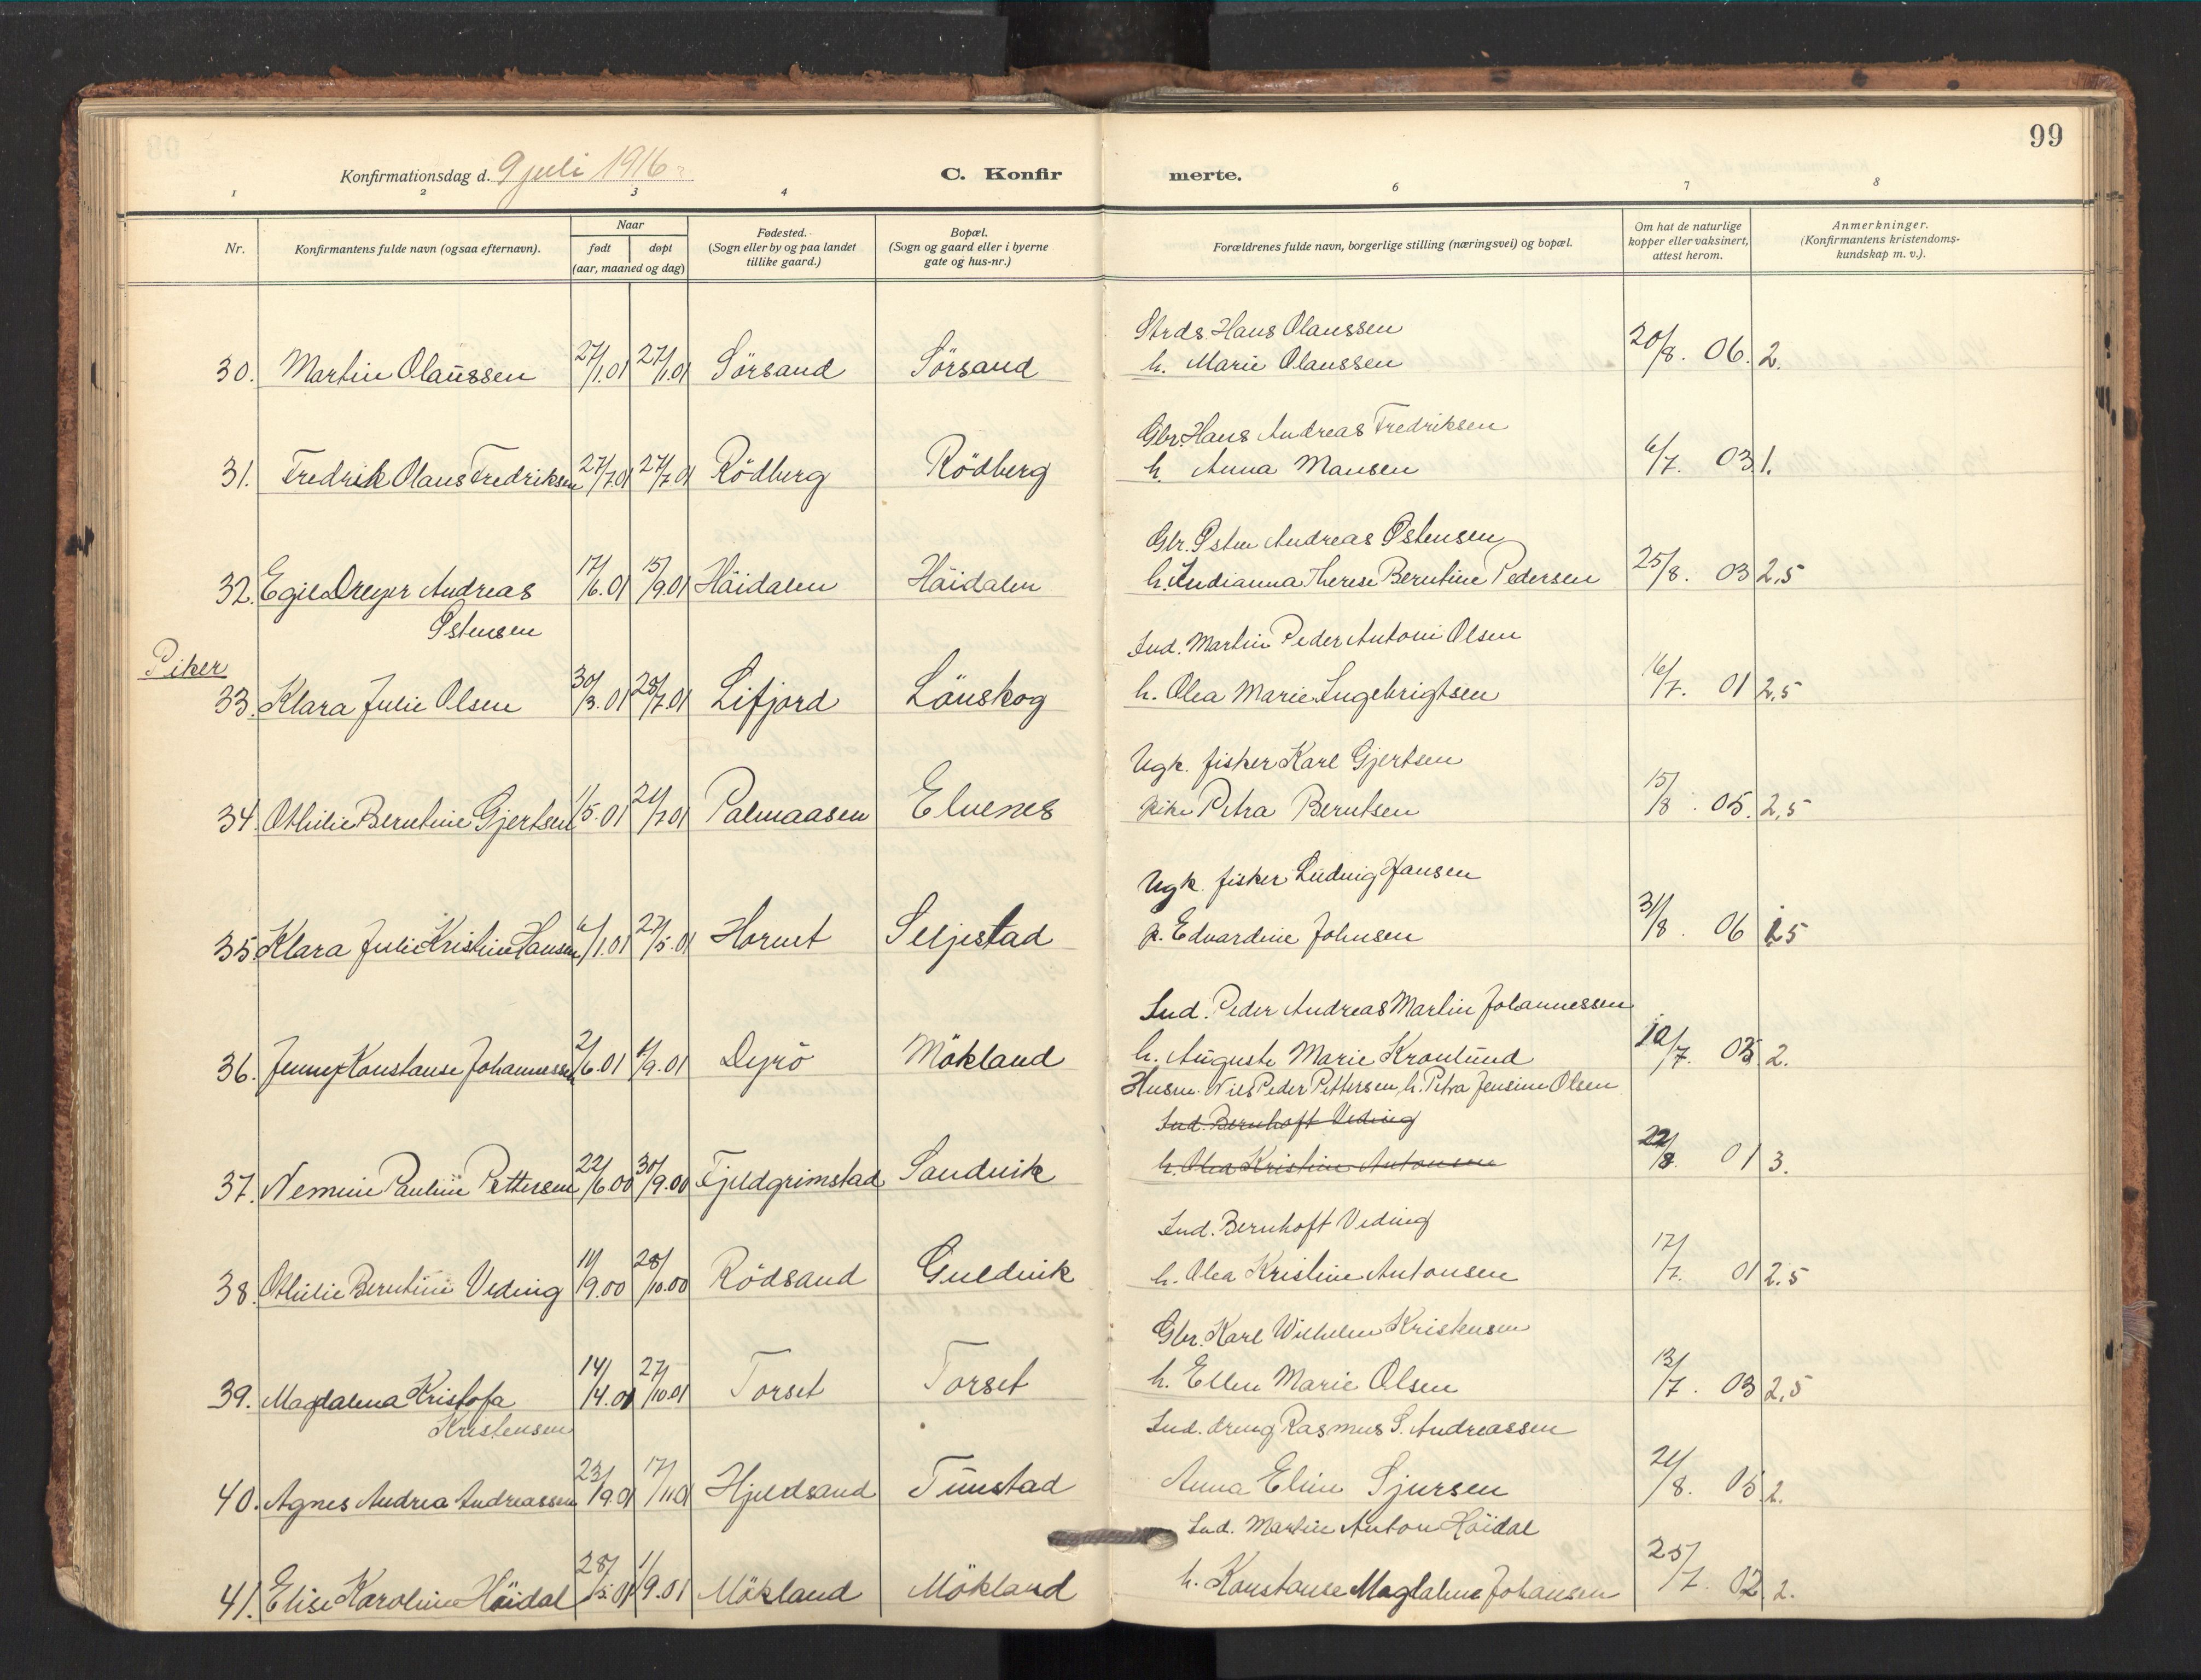 99
Konfirmationsdag d. 9 juli 1916.
C. Konfir
merte.
1 2 3 4 6 7 8
Nr.
Konfirmantens fulde navn (ogsaa efternavn).
Naar
født
døpt
(aar, maaned og dag)
Fødested.
(Sogn eller by og paa landet
tillike gaard.)
Bopæl.
(Sogn og gaard eller i byerne
gate og hus-nr.)
Forældrenes fulde navn, borgerlige stilling (næringsvei) og bopæl.
Om hat de naturlige
kopper eller vaksinert,
attest herom.
Anmerkninger.
(Konfirmantens kristendoms-
kundskap m. v.).
Strds. Hans Olaussen
30. Martin Olaussen 27/1.01 27/1.01 Sörsand Sörsand h. Marie Olaussen 20/8. 06. 2.
Gbr. Hans Andreas Fredriksen
31. Fredrik Olaus Fredriksen 27/7.01 27/7.01 Rödberg Rödberg h. Anna Mansen 6/7. 03 1.
Gbr. Østen Andreas Østensen
32. Egil Dreyer Andreas 17/6.01 15/9.01 Häidalen Häidalen h. Indianna Therese Berntine Pedersen 25/8. 03 2,5
Østensen
Piker
Ind. Martin Peder Antoni Olsen
33. Klara Julie Olsen 30/3.01 28/7.01 Lifjord Länskog h. Olea Marie Ingebrigtsen 16/7. 01 2,5
Ugk. fisker Karl Gjertsen
34. Othilie Berntine Gjertsen 1/5.01 21/7.01 Palmaasen Elvenes pike Petra Berntsen 15/8. 05. 2,5
Ugk. fisker Ludvig Hansen
35. Klara Julie Kristine Hansen 6/1.01 27/5.01 Hornet Seljestad p. Edvardine Johnsen 31/8. 06 1,5
Ind. Peder Andreas Martin Johannessen
36. Jenny Konstanse Johannessen 2/6.01 1/9.01 Dyrö Mökland h. Auguste Marie Kronlund 10/7. 03 2.
Husm. Nils Peder Pettersen, h. Petra Jensine Olsen
Ind. Bernhoft Veding
37. Nemine Pauline Pettersen 22/6.00 30/9.00 Fjeldgrimstad Sandvik h. Olea Kristine Antonsen 22/8. 01 3.
Ind. Bernhoft Veding
38. Othilie Berntine Veding 11/9.00 28/10.00 Rödsand Guldvik h. Olea Kristine Antonsen 17/7. 01 2,5
Gbr. Karl Wilhelm Kristensen
39. Magdalena Kristofa 14/4.01 27/10.01 Torset Torset h. Ellen Marie Olsen 13/7. 03 2,5
Kristensen
Ind. dreng Rasmus S. Andreassen
40. Agnes Andrea Andreassen 23/9.01 17/11.01 Hjeldsand Tunstad Anna Eline Sjursen 21/8. 05 2.
Ind. Martin Anton Häidal
41. Elise Karoline Häidal 28/5.01 1/9.01 Mökland Mökland h. Konstanse Magdalene Johansen 25/7. 02. 2.